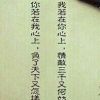 我若在你心上，情敌三千又何妨
你若在我心上，负了天下又怎样